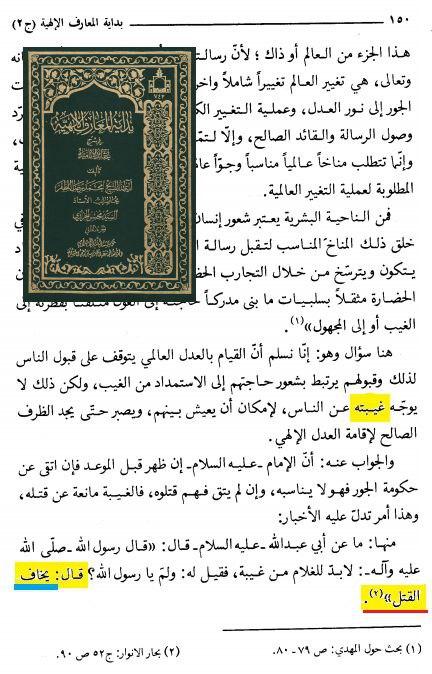 ١٥٠
بداية المعارف الإلهية (ج٢)
هذا الجزء من العالم أو ذاك ؛ لأنّ رسالـ
وتعالى، هي تغيير العالم تغييراً شاملاً واخر
الجور إلى نور العدل، وعملية التغيير الك
وصول الرسالة والقائد الصالح، وإلّا لتمّـ
وإنّما تتطلب مناخاً عالمياً مناسباً وجوّاً عا
المطلوبة لعملية التغيير العالمية.
فمن الناحية البشرية يعتبر شعور إنسان
خلق ذلك المناخ المناسب لتقبل رسالة ا
يتكون ويترسّخ من خلال التجارب الحض
الحضارة مثقلاً بسلبيات ما بنى مدركاً حاجته إلى العون متلفتاً بفطرته إلى
الغيب أو إلى المجهول»(١).
هنا سؤال وهو: إنّا نسلم أنّ القيام بالعدل العالمي يتوقف على قبول الناس
لذلك وقبولهم يرتبط بشعور حاجتهم إلى الاستمداد من الغيب، ولكن ذلك لا
يوجّه غيبته عن الناس، لإمكان أن يعيش بينهم، ويصبر حتّى يجد الظرف
الصالح لإقامة العدل الإلهي.
والجواب عنه: أنّ الإمام ـ عليه السلام ـ إن ظهر قبل الموعد فإن اتق عن
حكومة الجور فهو لا يناسبه، وإن لم يتق فهم قتلوه، فالغيبة مانعة عن قتله،
وهذا أمر تدلّ عليه الأخبار:
منها: ما عن أبي عبدالله ـ عليه السلام ـ قال: «قال رسول الله ـ صلّى الله
عليه وآله ـ: لابدّ للغلام من غيبة، فقيل له: ولمَ يا رسول الله؟ قال: يخاف
القتل»(٢).
(١) بحث حول المهدي: ص ٧٩ ـ ٨٠.
(٢) بحار الانوار: ج٥٢ ص ٩٠.
بداية المعارف الإلهية